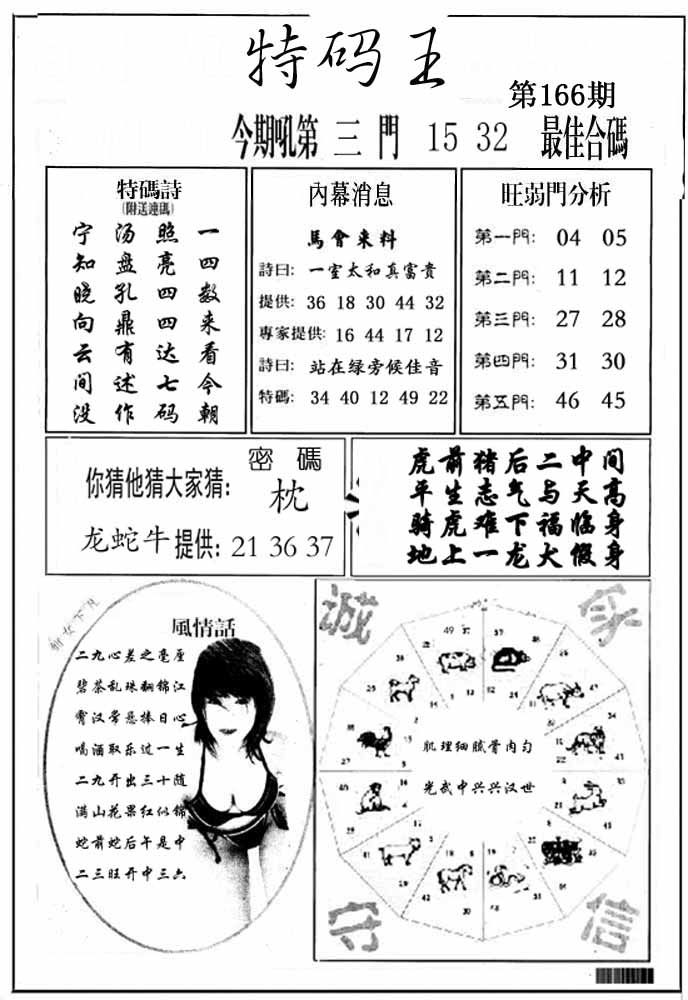 特码王
第166期
今期吼第 三 門 15 32 最佳合碼
特碼詩
(附送連碼)
一四数来看今朝
照亮四四达七码
汤盘孔鼎有述作
宁知晓向云间没
內幕消息
馬會来料
詩曰: 一室太和真富貴
提供: 36 18 30 44 32
專家提供: 16 44 17 12
詩曰: 站在绿旁候佳音
特碼: 34 40 12 49 22
旺弱門分析
第一門: 04 05
第二門: 11 12
第三門: 27 28
第四門: 31 30
第五門: 46 45
密碼
你猜他猜大家猜: 枕
龙蛇牛 提供: 21 36 37
虎前猪后二中间
平生志气与天高
骑虎难下福临身
地上一龙大假身
女下凡
風情話
二九心差之毫厘
碧茶乱珠翻锦江
霄汉常悬捧日心
喝酒取乐过一生
二九开出三十随
满山花果红似锦
蛇前蛇后午是中
二三旺开中三六
诚
守
信
肌理细腻骨肉匀
光武中兴兴汉世
49 37